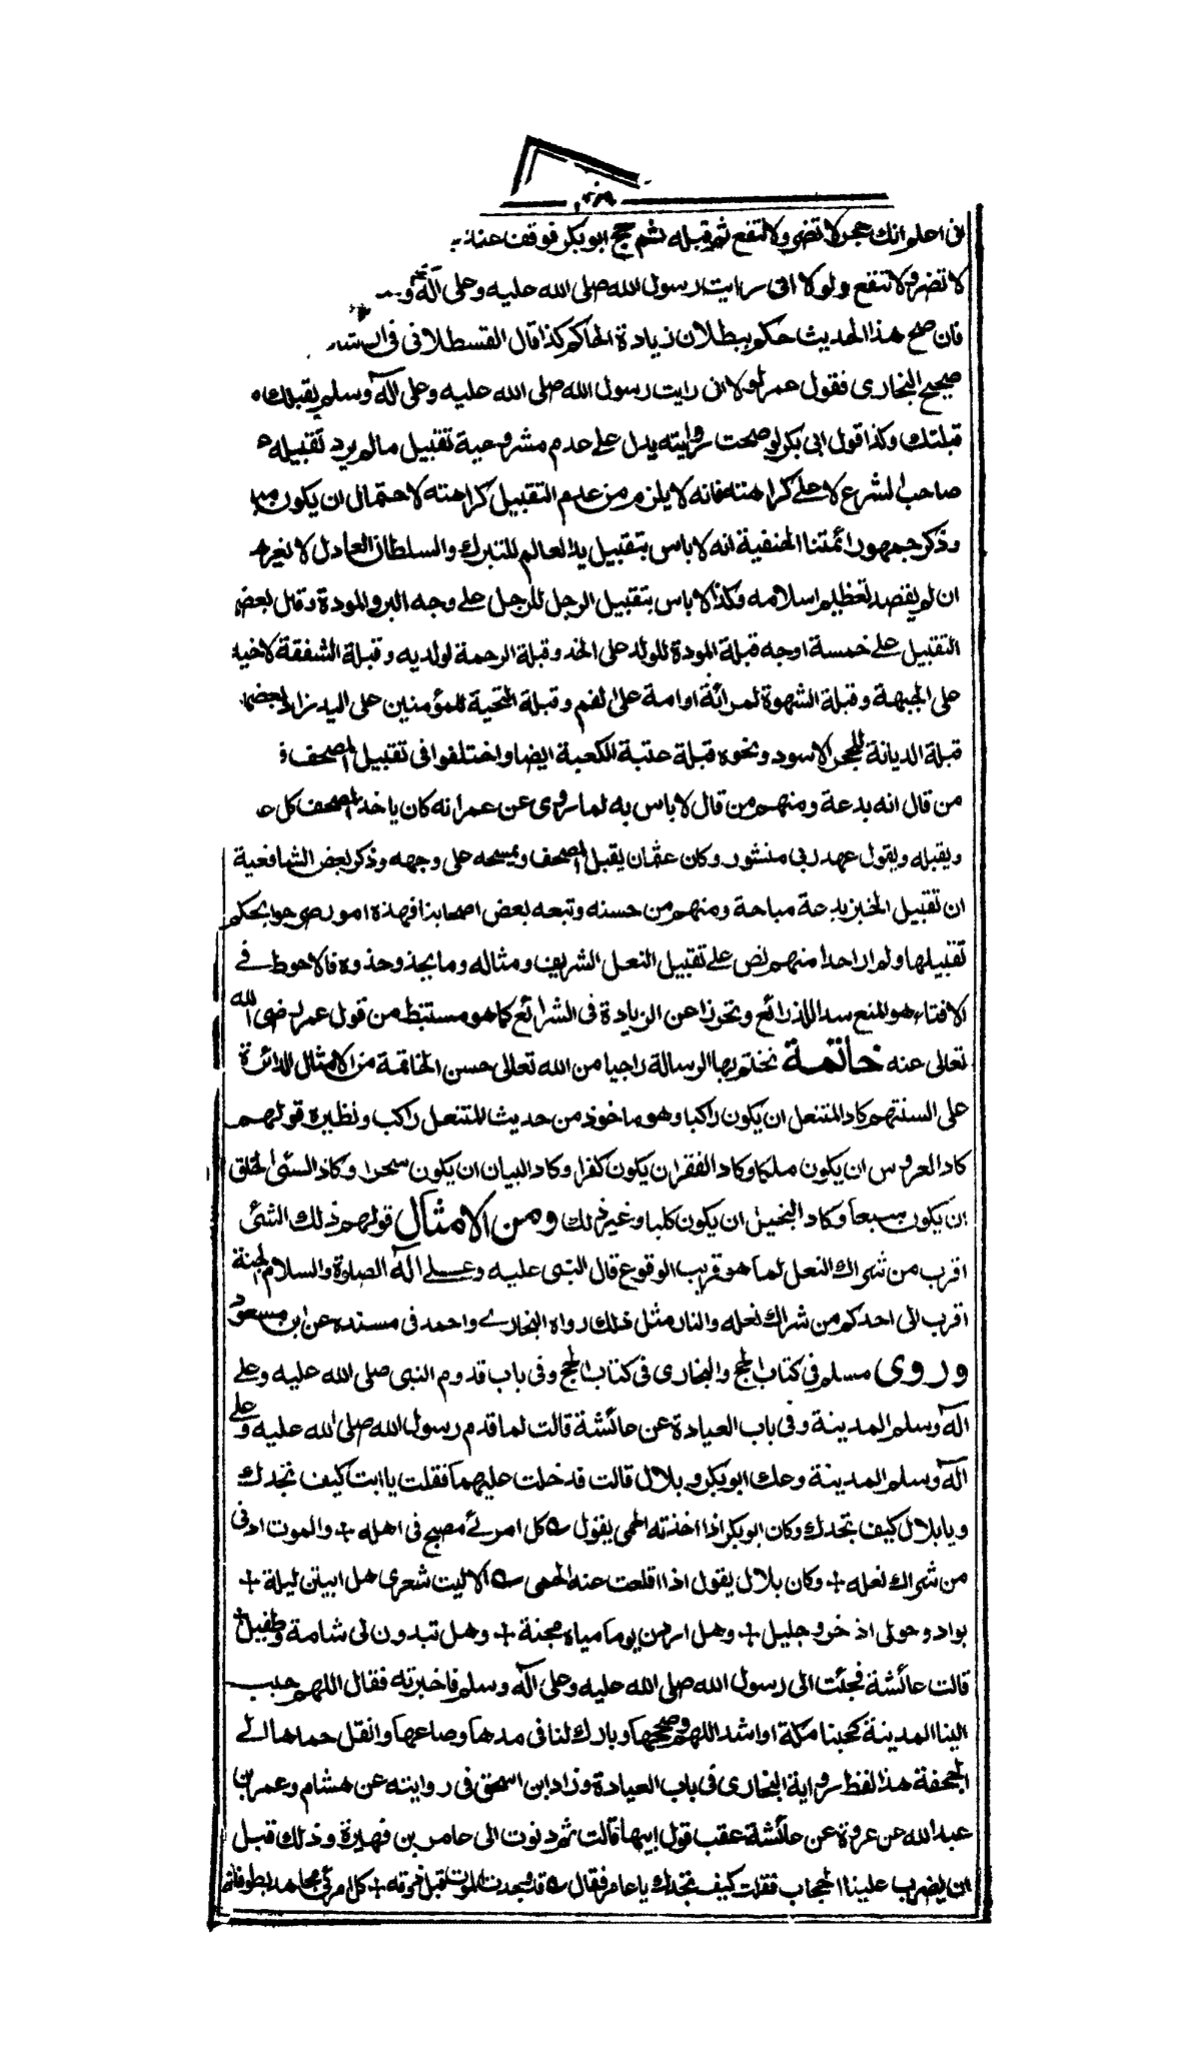 انى اعلم انك حجر لا تضر ولا تنفع ثم قبله ثم حج ابوبكر فوقف عند
لا تضر ولا تنفع ولولا انى رايت رسول الله صلى الله عليه وعلى آله و
فان صح هذا الحديث حكم ببطلان زيادة الحاكم كذا قال القسطلانى فى
صحيح البخارى فقول عمر لولا انى رايت رسول الله صلى الله عليه وعلى آله وسلم يقبلك ما
قبلتك وكذا قول ابى بكر لو صحت روايته يدل على عدم مشروعية تقبيل ما لم يرد تقبيله
صاحب الشرع لا على كراهته فانه لا يلزم من عدم التقبيل كراهته لاحتمال ان يكون
وذكر جمهور ائمتنا الحنفية انه لا باس بتقبيل يد العالم للتبرك والسلطان العادل لا لغيره
ان لم يقصد تعظيم اسلامه وكذا لا باس بتقبيل الرجل للرجل على وجه البر والمودة وقال بعضهم
التقبيل على خمسة اوجه قبلة المودة للولد على الخد وقبلة الرحمة لولديه وقبلة الشفقة لاخيه
على الجبهة وقبلة الشهوة لمرأة او امة على الفم وقبلة التحية للمؤمنين على اليد زاد بعضهم
قبلة الديانة للحجر الاسود ونحوه قبلة عتبة الكعبة ايضا واختلفوا فى تقبيل المصحف
من قال انه بدعة ومنهم من قال لا باس به لما روى عن عمر انه كان ياخذ المصحف كل
ويقبله ويقول عهد ربى منشور وكان عثمان يقبل المصحف ويمسحه على وجهه وذكر بعض الشافعية
ان تقبيل الخبز بدعة مباحة ومنهم من حسنه وتبعه بعض اصحابنا فهذه امور صرحوا بحكم
تقبيلها ولم ار احدا منهم نص على تقبيل النعل الشريف ومثاله وما يحذو حذوه فالاحوط فى
الافتاء هو المنع سدا للذرائع وتحرزا عن الزيادة فى الشرائع كما هو مستنبط من قول عمر رضى الله
تعالى عنه خاتمة نختم بها الرسالة راجيا من الله تعالى حسن الخاتمة من الامثال الدائرة
على السنتهم كاد المنتعل ان يكون راكبا وهو ماخوذ من حديث المتنعل راكب ونظيره قولهم
كاد العروس ان يكون ملكا وكاد الفقر ان يكون كفرا وكاد البيان ان يكون سحرا وكاد السئ الخلق
ان يكون سبعا وكاد البخيل ان يكون كلبا وغير ذلك ومن الامثال قولهم ذلك الشئ
اقرب من شراك النعل لما هو قريب الوقوع قال النبى عليه وعلى آله الصلوة والسلام الجنة
اقرب الى احدكم من شراك نعله والنار مثل ذلك رواه البخارى واحمد فى مسنده عن ابن مسعود
وروى مسلم فى كتاب الحج والبخارى فى كتاب الحج وفى باب قدوم النبى صلى الله عليه وعلى
آله وسلم المدينة وفى باب العيادة عن عائشة قالت لما قدم رسول الله صلى الله عليه وعلى
آله وسلم المدينة وعك ابوبكر وبلال قالت فدخلت عليهما فقلت يا ابت كيف تجدك
ويا بلال كيف تجدك وكان ابوبكر اذا اخذته الحمى يقول ؎ كل امرئ مصبح فى اهله + والموت ادنى
من شراك نعله + وكان بلال يقول اذا اقلعت عنه الحمى ؎ الا ليت شعرى هل ابيتن ليلة +
بواد وحولى اذخر وجليل + وهل اردن يوما مياه مجنة + وهل تبدون لى شامة وطفيل +
قالت عائشة فجئت الى رسول الله صلى الله عليه وعلى آله وسلم فاخبرته فقال اللهم حبب
الينا المدينة كحبنا مكة او اشد اللهم وصححها وبارك لنا فى مدها وصاعها وانقل حماها الى
الجحفة هذا لفظ رواية البخارى فى باب العيادة وزاد ابن اسحق فى روايته عن هشام وعمر بن
عبد الله عن عروة عن عائشة عقب قول ابيها قالت ثم دنوت الى عامر بن فهيرة وذلك قبل
ان يضرب علينا الحجاب فقلت كيف تجدك يا عامر فقال ؎ قد وجدت الموت قبل ذوقه + كل امرئ مجاهد بطوقه